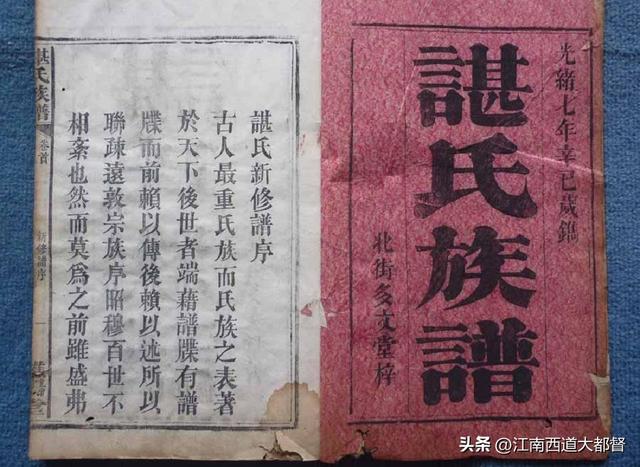 光緒七年辛巳歲鐫
諶氏族譜
北街多文堂梓
諶氏新修譜序
古人最重氏族而氏族之表著
於天下後世者端藉譜牒有譜
牒而前賴以傳後賴以述所以
聯疎遠敦宗族序昭穆百世不
相紊也然而莫為之前雖盛弗
諶氏族譜
卷首
新修譜序
一
头条 @江南西道大都督